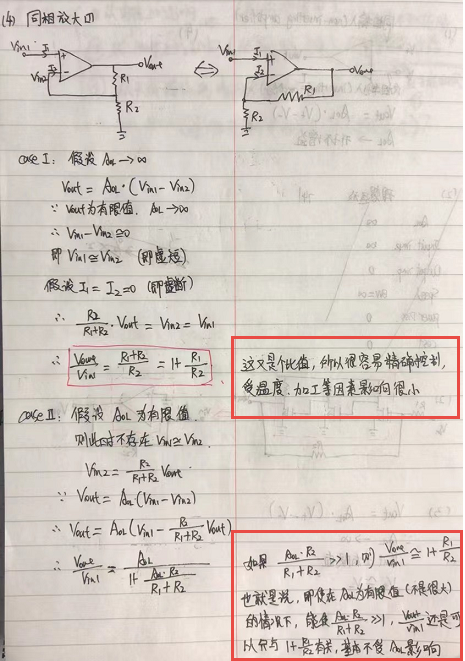 (4) 同相放大
Vin1 I1 + Vout
Vin2 I2 - R1
R2
⇔
Vin1 I1 + Vout
I2 - R1
R2
case I: 假设 AOL → ∞
Vout = AOL·(Vin1 - Vin2)
∵ Vout为有限值. AOL → ∞
∴ Vin1 - Vin2 ≅ 0
即 Vin1 ≅ Vin2 (即虚短)
假设 I1 = I2 = 0 (即虚断)
∴ R2/(R1+R2)·Vout = Vin2 = Vin1
∴ Vout/Vin1 = (R1+R2)/R2 = 1 + R1/R2
这又是个比值, 所以很容易精确控制,
受温度、加工等因素影响很小
case II: 假设 AOL 为有限值
则此时不存在 Vin1 ≅ Vin2.
Vin2 = R2/(R1+R2) Vout
∵ Vout = AOL(Vin1 - Vin2)
∴ Vout = AOL(Vin1 - R2/(R1+R2) Vout)
∴ Vout/Vin1 = AOL/(1 + AOL·R2/(R1+R2))
如果 AOL·R2/(R1+R2) >> 1, 则 Vout/Vin1 ≅ 1 + R1/R2
也就是说, 即使在 AOL为有限值 (不是很大)
的情况下, 能使 AOL·R2/(R1+R2) >> 1, Vout/Vin1 还是可
以只与 1+R1/R2 有关, 基本不受 AOL影响